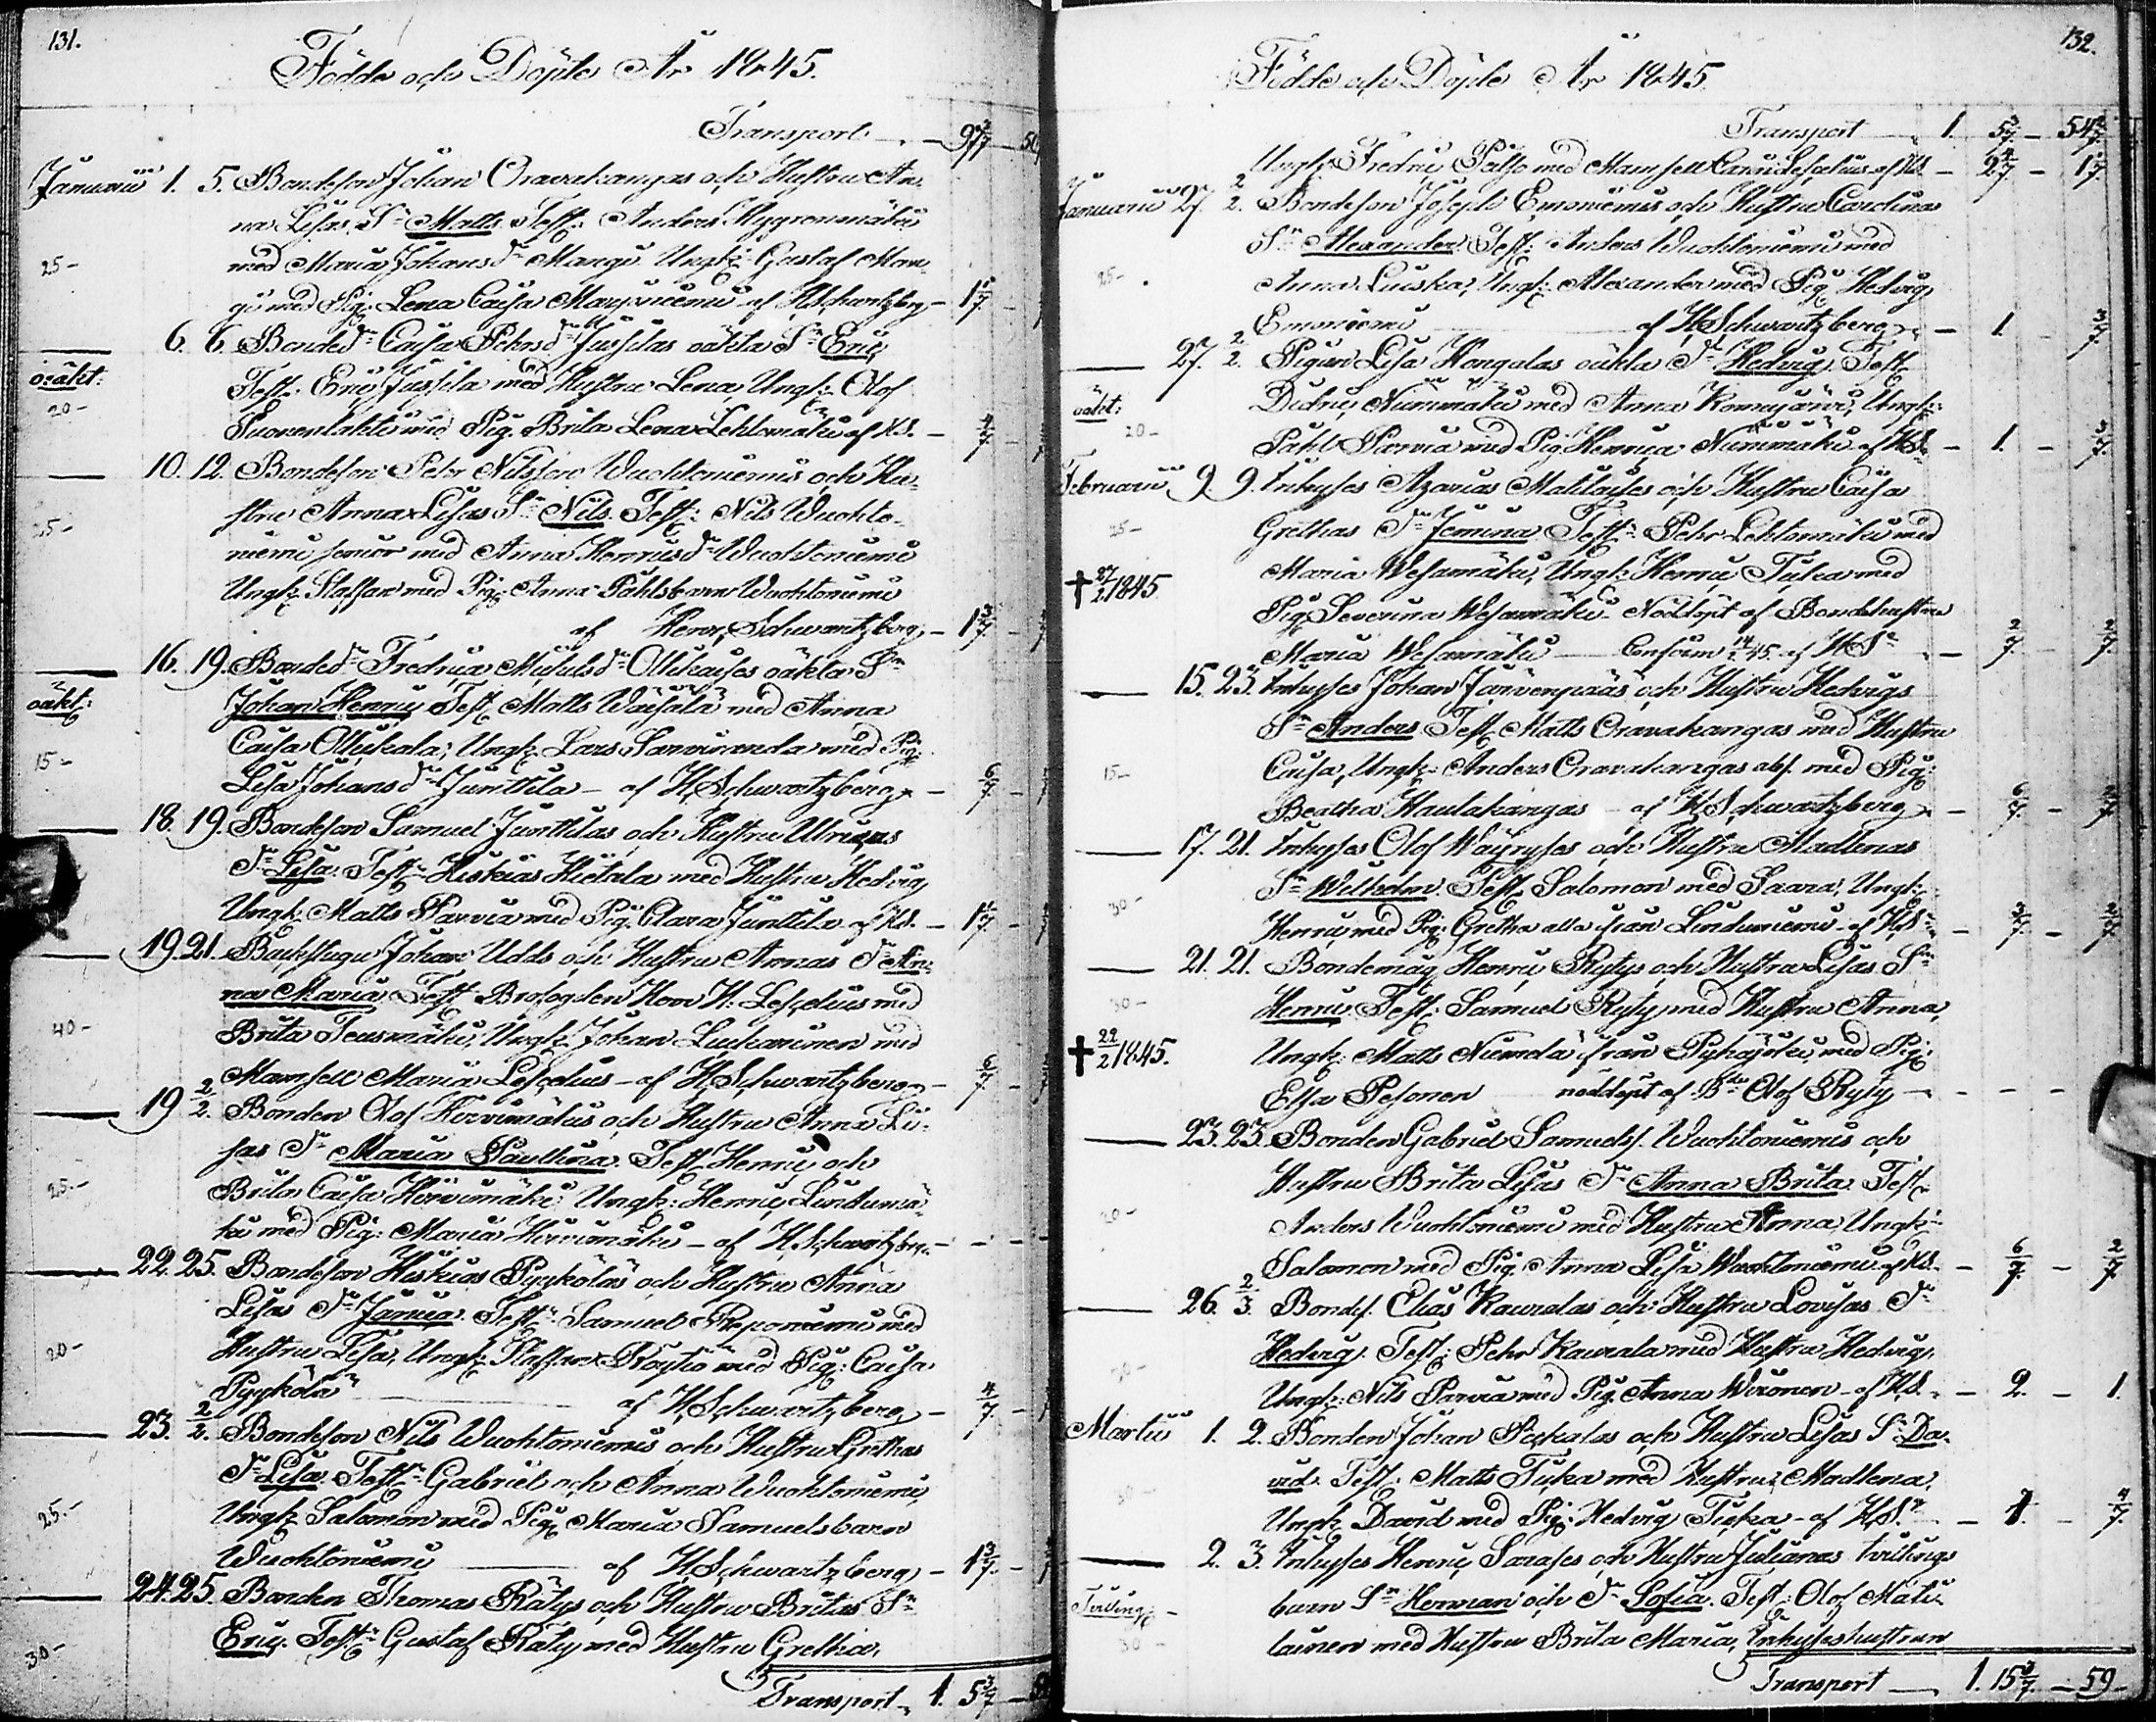 131.
Födde och Döpte År 1845.
Transport — 97 2/7
Januarii 1. 5. Bondeson Johan Oravakangas och Hustru An-
na Lisas Sn Matts Test: Anders Myggrenmäki
25- med Maria Johans dr Mangi Ungk: Gustaf Man-
gi med Pig: Lena Caisa Marjoniemi af H Schwartzberg
6. 6. Bonded:r Caisa Pehrs dr Jussilas oäkta Sn Eric
o:äkt: Test: Eric Jussila med Hustru Lena, Ungk: Olof
20- Suonenlahti med Pig. Brita Lena Lehtomäki af HS. — 4/7
10. 12. Bondeson Pehr Nilsson Wuohtoniemis och Hu-
stru Anna Lisas Sn Nils. Test: Nils Wuohto-
25- niemi senior med Anna Henricsdr Wuohtoniemi
Ungk: Staffan med Pig: Anna Påhlsbarn Wuohtoniemi
af Herr Schwartzberg — 1 3/7
16. 19. Bonded:r Fredrica Michelsdr Ollikaises oäkta Sn
oäkt: Johan Henric Test: Matts Wäisälä med Anna
Caisa Ollikala; Ungk: Lars Sarviranda med Pig:
15- Lisa Johans dr Junttila — af H Schwartzberg — 6/7
18. 19. Bondeson Samuel Junttilas och Hustru Ulricas
Dr Lisa. Test: Hiskias Hietala med Hustru Hedvig
Ungk: Matts Parvia med Pig: Clara Junttila af HS.
19. 21. Backstugu Johan Udds och Hustru Annas Dr An-
na Maria Test: Brofogden Herr H: Lescelius med
40- Brita Teusmäki, Ungk: Johan Luckarinen med
Mamsell Maria Lescelius — af H Schwartzberg — 6/7
19 2/2. Bonden Olof Hirvimäkis och Hustru Anna Li-
sas Dr Maria Paulina. Test: Henric och
25.- Brita Caisa Hirvimäki Ungk: Henric Lindumä-
ki med Pig: Maria Hirvimäki — af H Schwartzberg
22. 25. Bondeson Hiskias Pyykölas och Hustru Anna
Lisas Dr Jamia. Test: Samuel Reponiemi med
20- Hustru Lisa, Ungk: Staffan Röytiö med Pig: Caisa
Pyykölä af H Schwartzberg — 4/7.
23. 2/2. Bondeson Nils Wuohtoniemis och Hustru Grethas
Dr Lisa. Test: Gabriel och Anna Wuohtoniemi,
25.- Ungk: Salomon med Pig: Maria Samuelsbarn
Wuohtoniemi — af H Schwartzberg — 1 3/7.
24. 25. Bonden Thomas Rätys och Hustru Britas Sn
30- Eric. Test: Gustaf Räty med Hustru Gretha,
Transport — 1. 5 3/7
132.
Födde och Döpte År 1845.
Transport — 1. 5 3/7 — 54 2/7
Ungk: Fredric Palso med Mamsell Carin Lescelius af HS. — 2 4/7 — 1
Januarii 27. 2/2. Bondeson Joseph Emoniemis och Hustru Carolinas
Sn Alexander. Test: Anders Wuohtoniemi med
25- Anna Luiska, Ungk: Alexander med Pig: Hedvig
Emoniemi — af H Schwartzberg — 1
27. 2/2. Pigan Lisa Kongalas oäkta Dr Hedvig Test:
oäkt: Didric Nummäki med Anna Komujärvi, Ungk:
20- Påhl Parvia med Pig: Henrica Nummäki af HS. — 1.
Februarii 9. 9. Inhyses Azarias Matilaises och Hustru Caisa
25- Grethas Dr Jemina Test: Pehr Lehtomäki med
† 27/2 1845 Maria Wesamäki, Ungk: Henric Tuka med
Pig: Severina Wesamäki - Nöddöpt af Bondehustru
Maria Wesamäki — Confirm 14/2 45. af HSr — 2/7. — 2/7.
15. 23. Inhyses Johan Järvenpääs och Hustru Hedvigs
Sn Anders Test: Matts Oravakangas med Hustru
15- Caisa, Ungk: Anders Oravakangas abs. med Pig:
Beatha Haulakangas — af H Schwartzberg — 6/7.
17. 21. Inhyses Olof Wäyryses och Hustru Madlenas
Sn Wilhelm. Test: Salomon med Saara, Ungk:
30- Henric med Pig: Gretha alla ifrån Lindumiemi — af HS
21. 21. Bondemåg Henric Rytys och Hustru Lisas Sn
30- Henric Test: Samuel Ryty med Hustru Anna,
† 22/2 1845. Ungk: Matts Niemelä ifrån Pyhäjoki med Pig:
Elsa Pesonen nöddöpt af Bden Olof Ryty
23. 23. Bonden Gabriel Samuelss. Wuohtoniemis och
Hustru Brita Lisas Dr Anna Brita. Test:
20- Anders Wuohtoniemi med Hustru Anna, Ungk:
Salomon med Pig. Anna Lisa Wuohtoniemi af HS. — 6/7 — 2/7
26. 2/3. Bonds. Elias Kauralas och Hustru Lovisas Dr
Hedvig. Test: Pehr Kaurala med Hustru Hedvig,
30- Ungk: Nils Parvia med Pig. Anna Wironen — af HS. — 2. — 1.
Martii 1. 2. Bonden Johan Peckalas och Hustru Lisas Sn Da-
vid. Test: Matts Tuka med Hustru Madlena,
30- Ungk: David med Pig: Hedvig Tuka — af HSr — 1. — 4/7.
2. 3. Inhyses Henric Sarases och Hustru Julianas tvillings
Tvilling: barn Sn Herman och Dr Sofia. Test: Olof Mati-
30- lainen med Hustru Brita Maria, Inhyseshustrun
Transport — 1. 15 3/7. — 59